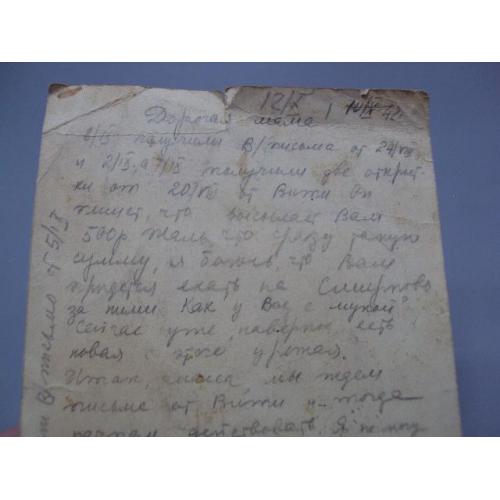 12/X
Дорогая мама! 14/IX 42
6/IX получили В/письма от 24/VIII
и 2/IX, а 7/IX получили две открыт
ки от 20/VIII от Вити Он
пишет, что высылает Вам
500р Жаль что сразу такую
сумму, я боюсь, что Вам
придется ехать на Смирново
за ними Как у Вас с мукой?
Сейчас уже, наверное есть
новая с этого урожая.
Итак, мамаса, мы ждем
письма от Вити и тогда
начнем действовать. Я не могу
В/письмо от 5/IX